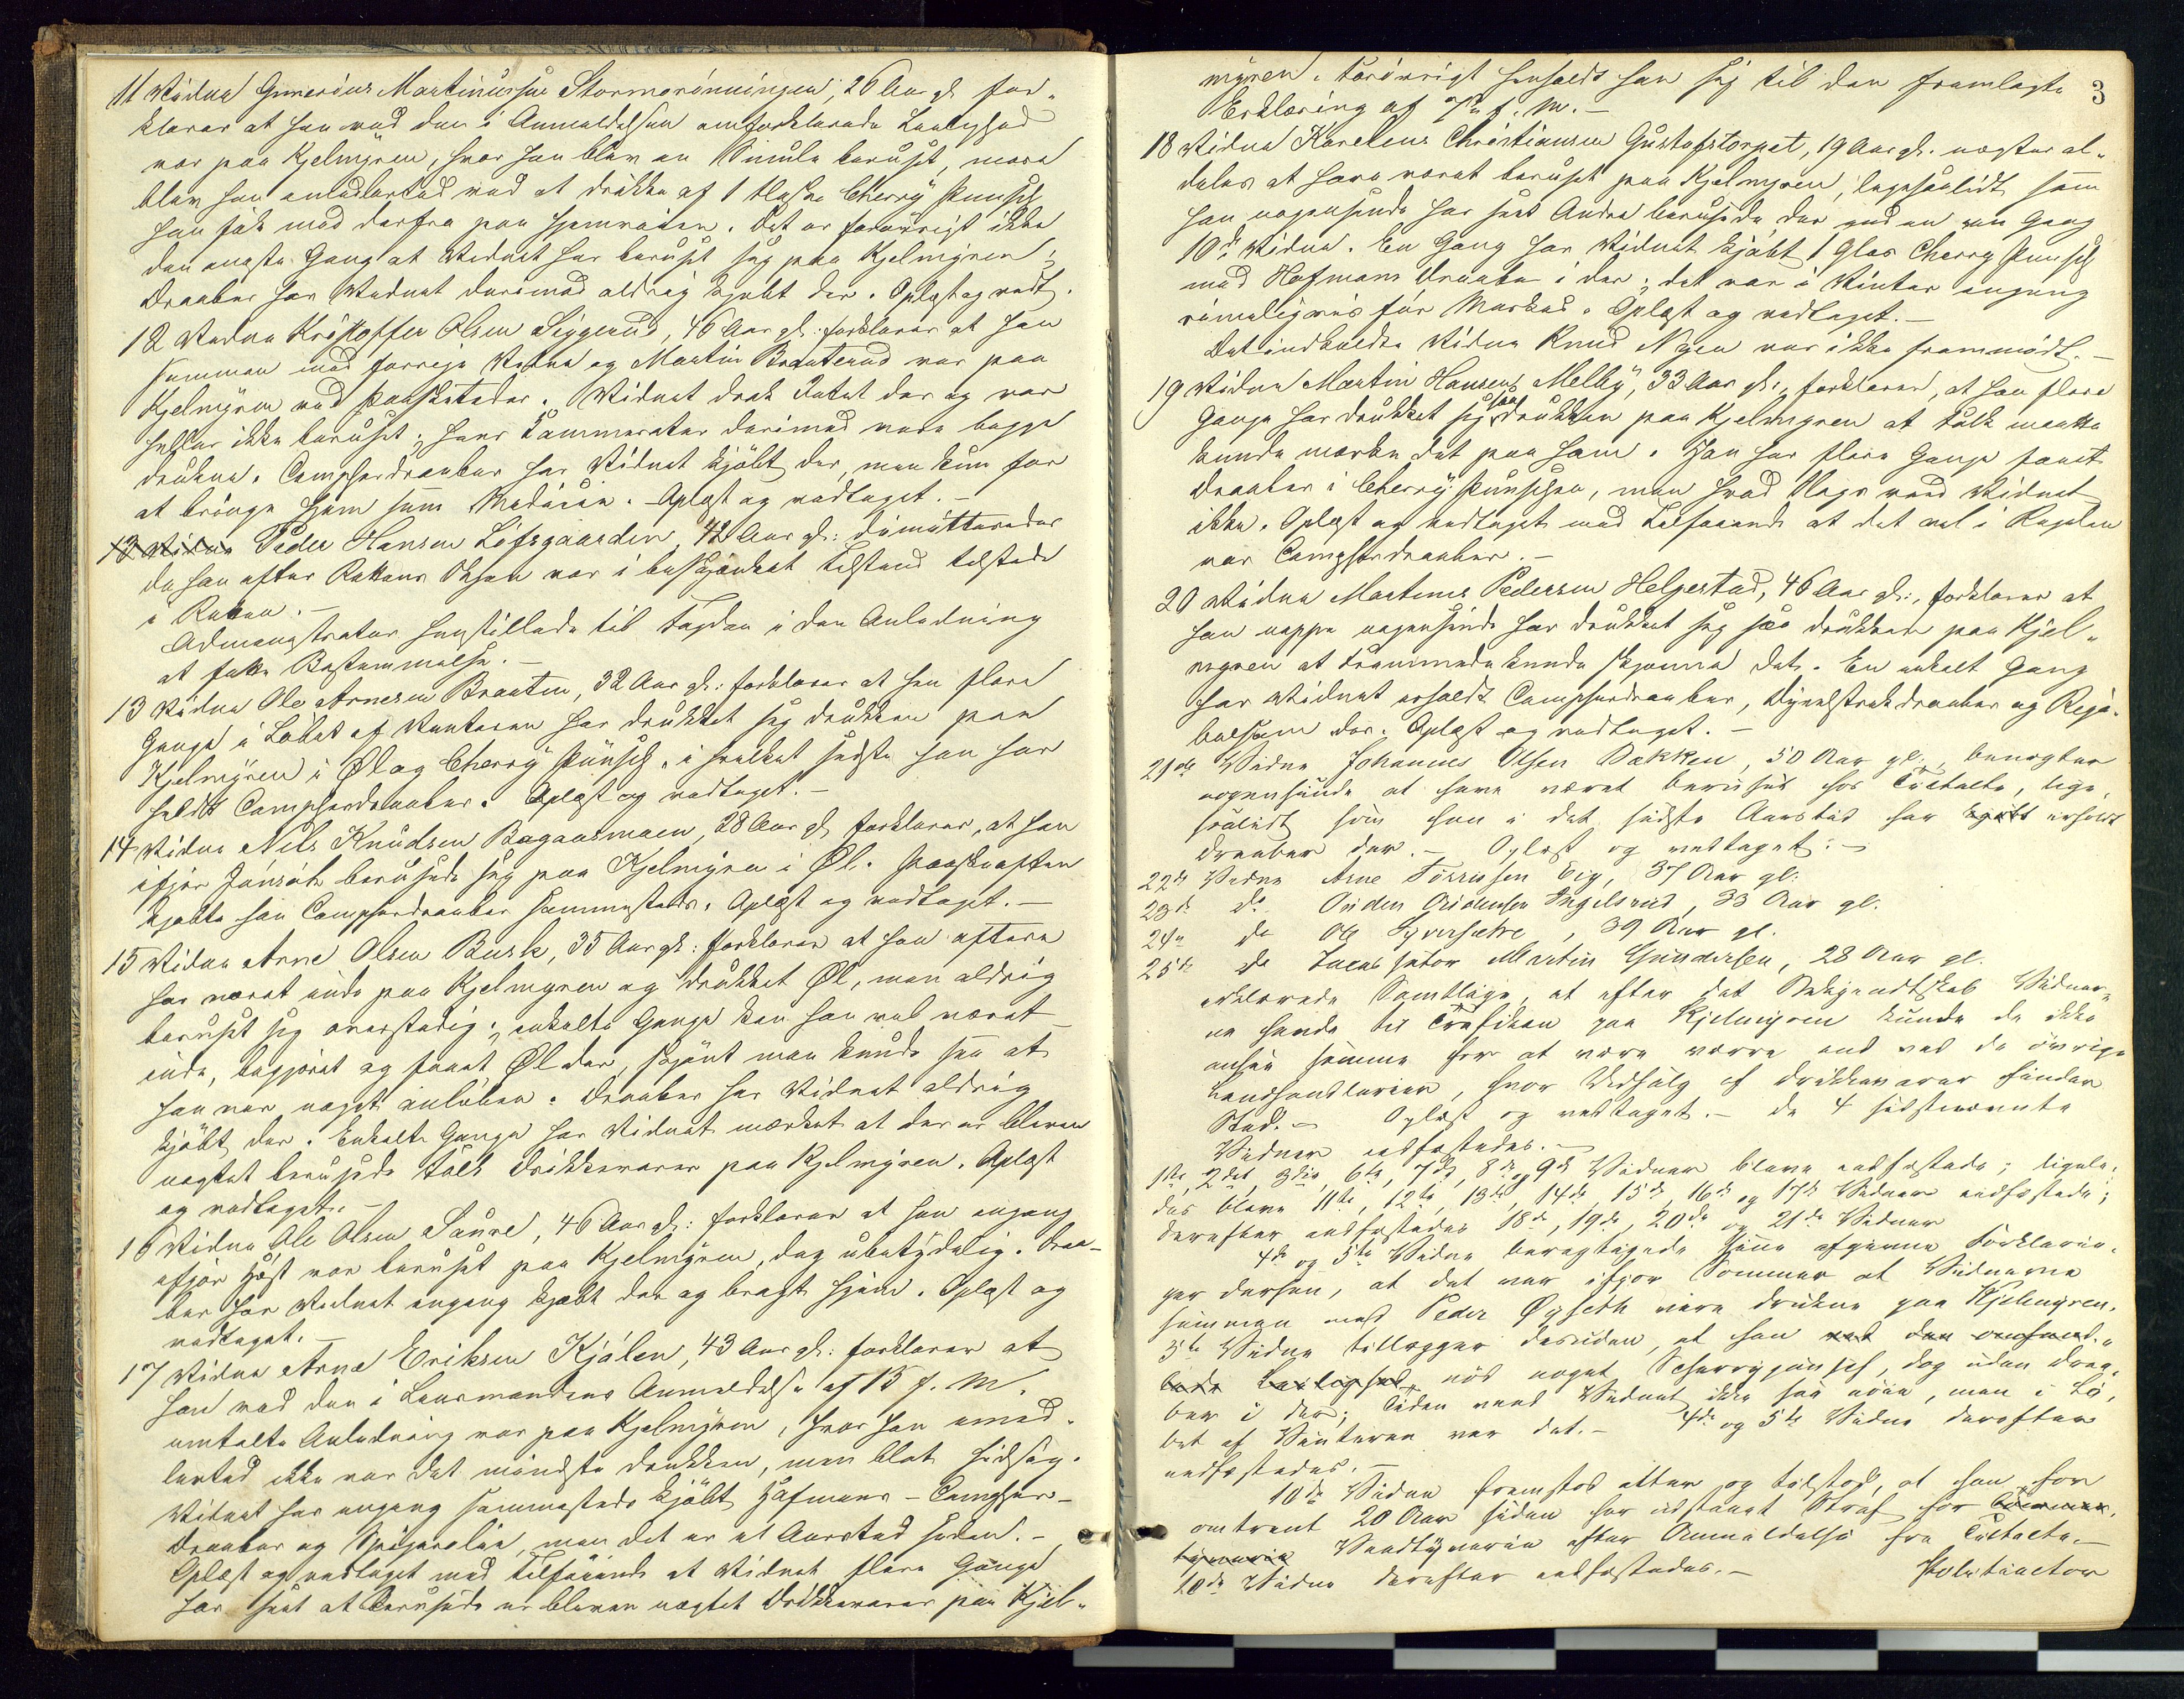 11 Vidne Gunerius Martinussen Stormorönningen, 26 Aar gl. for-
klarer at han ved den i Anmeldelsen omforklarede Leilighed
var paa Kjelmyren, hvor han blev en Smule beruset, mere
blev han imidlertid ved at drikke af 1 Flaske Cherry Punsch
han fik med derfra paa Hjemveien. Det er forøvrigt ikke
den eneste Gang at Vidnet har beruset sig paa Kjelmyren;
Draaber har Vidnet derimod aldrig kjøbt der. Oplæst og vedt.
12 Vidne Kristoffer Olsen Siggerud, 46 Aar gl: forklarer at han
sammen med forrige Vidne og Martin Brauterud var paa
Kjelmyren ved Paasketider. Vidnet drak Intet der og var
heller ikke beruset; hans Kammerater derimod vare begge
drukne. Campherdraaber har Vidnet kjöbt der, men kun for
at bringe hjem som Medicin. - Oplæst og vedtaget. -
13 Vidne Peder Hansen Löfsgaarden, 42 Aar gl: dimitteredes
da han efter Rettens Skjøn var i beskjænket Tilstand tilstede
i Retten. -
Administrator henstillede til Fogden i den Anledning
at fatte Bestemmelse. -
13 Vidne Ole Arnesen Braaten, 32 Aar gl: forklarer at han flere
Gange i Løbet af Vinteren har drukket sig drukken paa
Kjelmyren i Øl og Cherry Punsch, i hvilket sidste han har
heldt Campherdraaber. Oplæst og vedtaget. -
14 Vidne Nils Knudsen Bagaasmoen, 28 Aar gl, forklarer, at han
ifjor Jonsok berusede sig paa Kjelmyren i Øl. Paaskeaften
kjøbte han Campherdraaber sammesteds. Oplæst og vedtaget. -
15 Vidne Arne Olsen Busk, 35 Aar gl: forklarer at han oftere
har været inde paa Kjelmyren og drukket Øl, men aldrig
beruset sig overstadig; enkelte Gange kan han vel været
inde, begjæret og faaet Øl der, skjönt man kunde see at
han var noget anløben. Draaber har Vidnet aldrig
kjöbt der. Enkelte Gange har Vidnet mærket at der er bleven
nægtet berusede Folk Drikkevarer paa Kjelmyren. Oplæst
og vedtaget. -
16 Vidne Ole Olsen Saure, 46 Aar gl: forklarer at han engang
ifjor Høst var beruset paa Kjelmyren, dog ubetydelig. Draa-
ber har Vidnet engang kjøbt der og bragt hjem. Oplæst og
vedtaget. -
17 Vidne Arne Eriksen Kjölen, 43 Aar gl: forklarer at
han ved den i Lensmandens Anmeldelse af 15 f. M.
omtalte Anledning var paa Kjelmyren, hvor han imid-
lertid ikke var det mindste drukken, men blot hidsig.
Vidnet har engang sammesteds kjöbt Hofmans- Campher-
Draaber og Spigerolie, men det er et Aarstid siden. -
Oplæst og vedtaget med Tilføiende at Vidnet flere Gange
har seet at Berusede er bleven nægtet Drikkevarer paa Kjel-
3
myren. Forövrigt henholdt han sig til den fremlagte
Erklæring af 7de f. M. -
18 Vidne Karelius Christiansen Gustafstorpet, 19 Aar gl. nægter al-
deles at have været beruset paa Kjelmyren, ligesaalidt som
han nogensinde har seet Andre berusede der end en Gang
10de Vidne. En Gang har Vidnet kjöbt 1 Glas Cherry Punsch
med Hofmans Draaber i der; det var i Vinter engang
rimeligvis før Marked. Oplæst og vedtaget. -
Det indkaldte Vidne Knud Nyen var ikke fremmödt. -
19 Vidne Martin Hansen Melby, 33 Aar gl., forklarer, at han flere
Gange har drukket sig saa drukken paa Kjelmyren at Folk maatte
kunde mærke det paa ham. Han har flere Gange faaet
Draaber i Cherry Punschen, men hvad Slags veed Vidnet
ikke. Oplæst og vedtaget med Tilføiende at det vel i Regelen
var Campherdraaber. -
20 Vidne Martinus Pedersen Helgestad, 46 Aar gl., forklarer at
han neppe nogensinde har drukket sig saa drukken paa Kjel-
myren at Fremmede kunde skjønne det. En enkelt Gang
har Vidnet erholdt Campherdraaber, og Riga-
balsam der. Oplæst og vedtaget. -
21de Vidne Johannes Olsen Bakken, 50 Aar gl., benægter
nogensinde at have været beruset hos Tiltalte, lige-
saalidt som han i det sidste Aarstid har kjøbt erholdt
Draaber der. - Oplæst og vedtaget. -
22de Vidne Arne Torresen Eig, 37 Aar gl:
23de do. Anden Andersen Ingelsrud, 33 Aar gl:
24de do Ole Syversætre, 39 Aar gl.
25de do Martin Gundersen, 28 Aar gl.
erklærede Samtlige, at efter det Bekjendtskab Vidner-
ne havde til Trafiken paa Kjelmyren kunde de ikke
ansee samme for at være værre end ved de övrige
Landhandlerier, hvor Udsalg af Drikkevarer finder
Sted. - Oplæst og vedtaget. - De 4 sidstnævnte
Vidner edfæstedes. -
1ste, 2det, 3die, 6te, 7de, 8de og 9de Vidner bleve edfæstede; ligele-
des bleve 11te, 12te, 13de, 14de, 15de, 16de og 17de Vidner edfæstede;
derefter edfæstedes 18de, 19de, 20de og 21de Vidner
4de og 5te Vidne berigtigede sine afgivne Forklarin-
ger derhen, at det var ifjor Sommer at Vidnerne
sammen med Peder Øgseth vare drukne paa Kjelmyren.
5te Vidne tillægger desuden, at han ved den omhand-
lede Leilighed nöd noget Scherrypunsch, dog uden Draa-
ber i den; Tiden veed Vidnet ikke saa nöie, men i Lö-
bet af Vinteren var det. - 4de og 5te Vidne derefter
edfæstedes. -
10de Vidne fremstod atter og tilstod, at han for
omtrent 20 Aar siden har udstaaet Straf for
Vedtyveri efter Anmeldelse fra Tiltalte. -
10de Vidne derefter edfæstedes. -